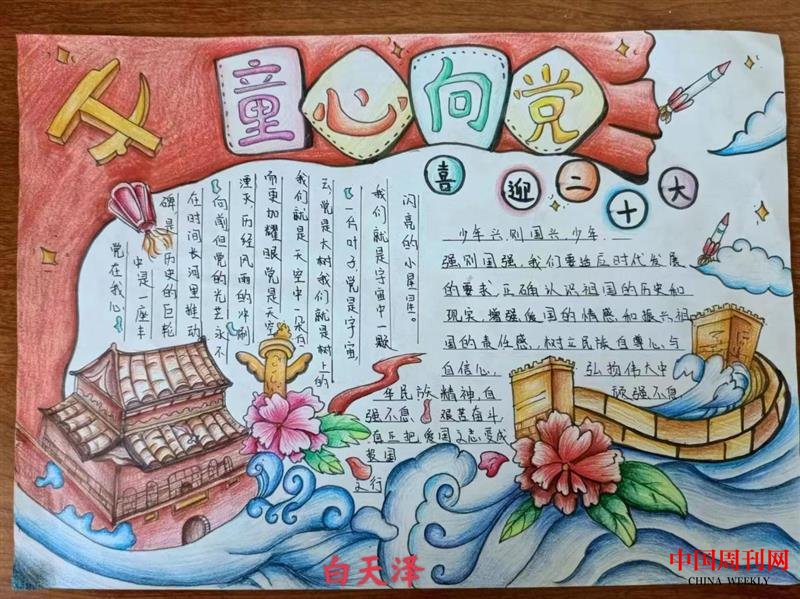 童心向党
喜迎二十大
党在我心
中是一座丰
碑是历史的巨轮
在时间长河里推动
向前但党的光芒永不
湮灭历经风雨的冲刷
而更加耀眼党是天空
我们就是天空中一朵白
云党是大树我们就是树上的
一片叶子,党是宇宙,
我们就是宇宙中一颗
闪亮的小星星。
少年兴则国兴,少年
强则国强,我们要适应时代发展
的要求,正确认识祖国的历史和
现实,增强爱国的情感和振兴祖
国的责任感,树立民族自尊心与
自信心, 弘扬伟大中
顽强不息
华民族精神,自
强不息,艰苦奋斗,
把爱国之志变成
报国
之行
白天泽
中国周刊网
CHINA WEEKLY